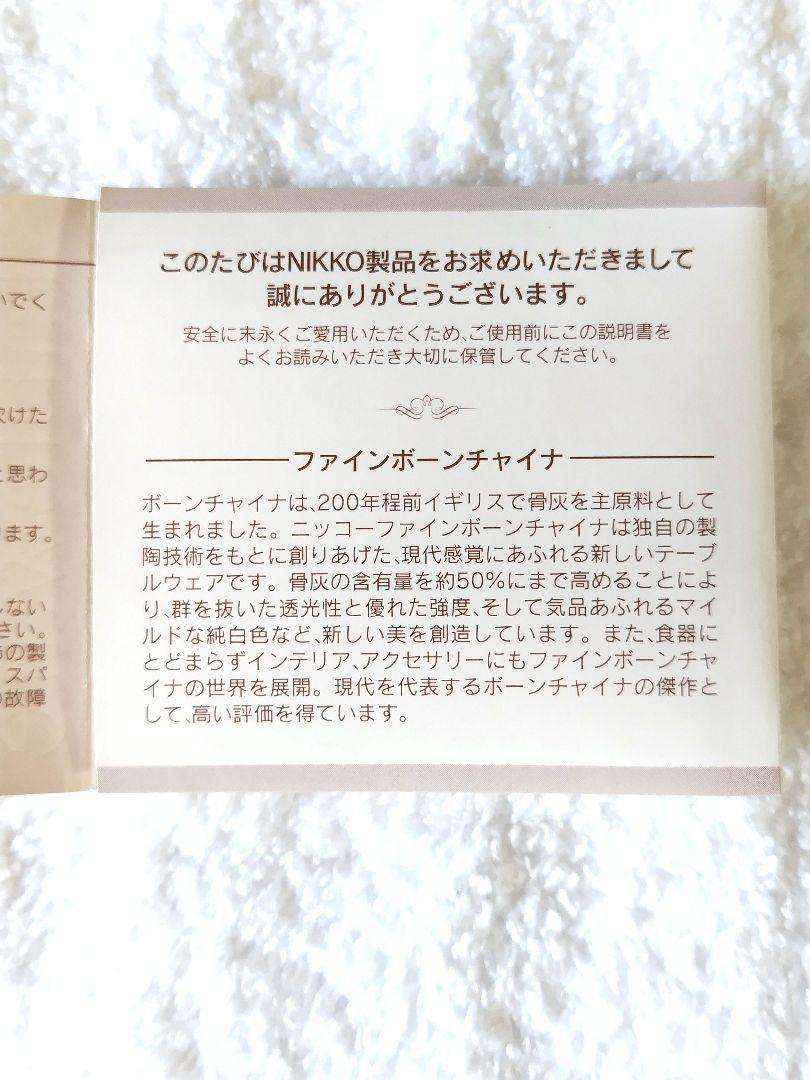 このたびはNIKKO製品をお求めいただきまして
誠にありがとうございます。
安全に末永くご愛用いただくため、ご使用前にこの説明書を
よくお読みいただき大切に保管してください。
ファインボーンチャイナ
ボーンチャイナは、200年程前イギリスで骨灰を主原料として
生まれました。ニッコーファインボーンチャイナは独自の製
陶技術をもとに創りあげた、現代感覚にあふれる新しいテーブ
ルウェアです。骨灰の含有量を約50%にまで高めることによ
り、群を抜いた透光性と優れた強度、そして気品あふれるマイ
ルドな純白色など、新しい美を創造しています。また、食器に
とどまらずインテリア、アクセサリーにもファインボーンチャ
イナの世界を展開。現代を代表するボーンチャイナの傑作と
して、高い評価を得ています。
いでく
欠けた
と思わ
ります。
しない
さい。
の製
スパ
故障